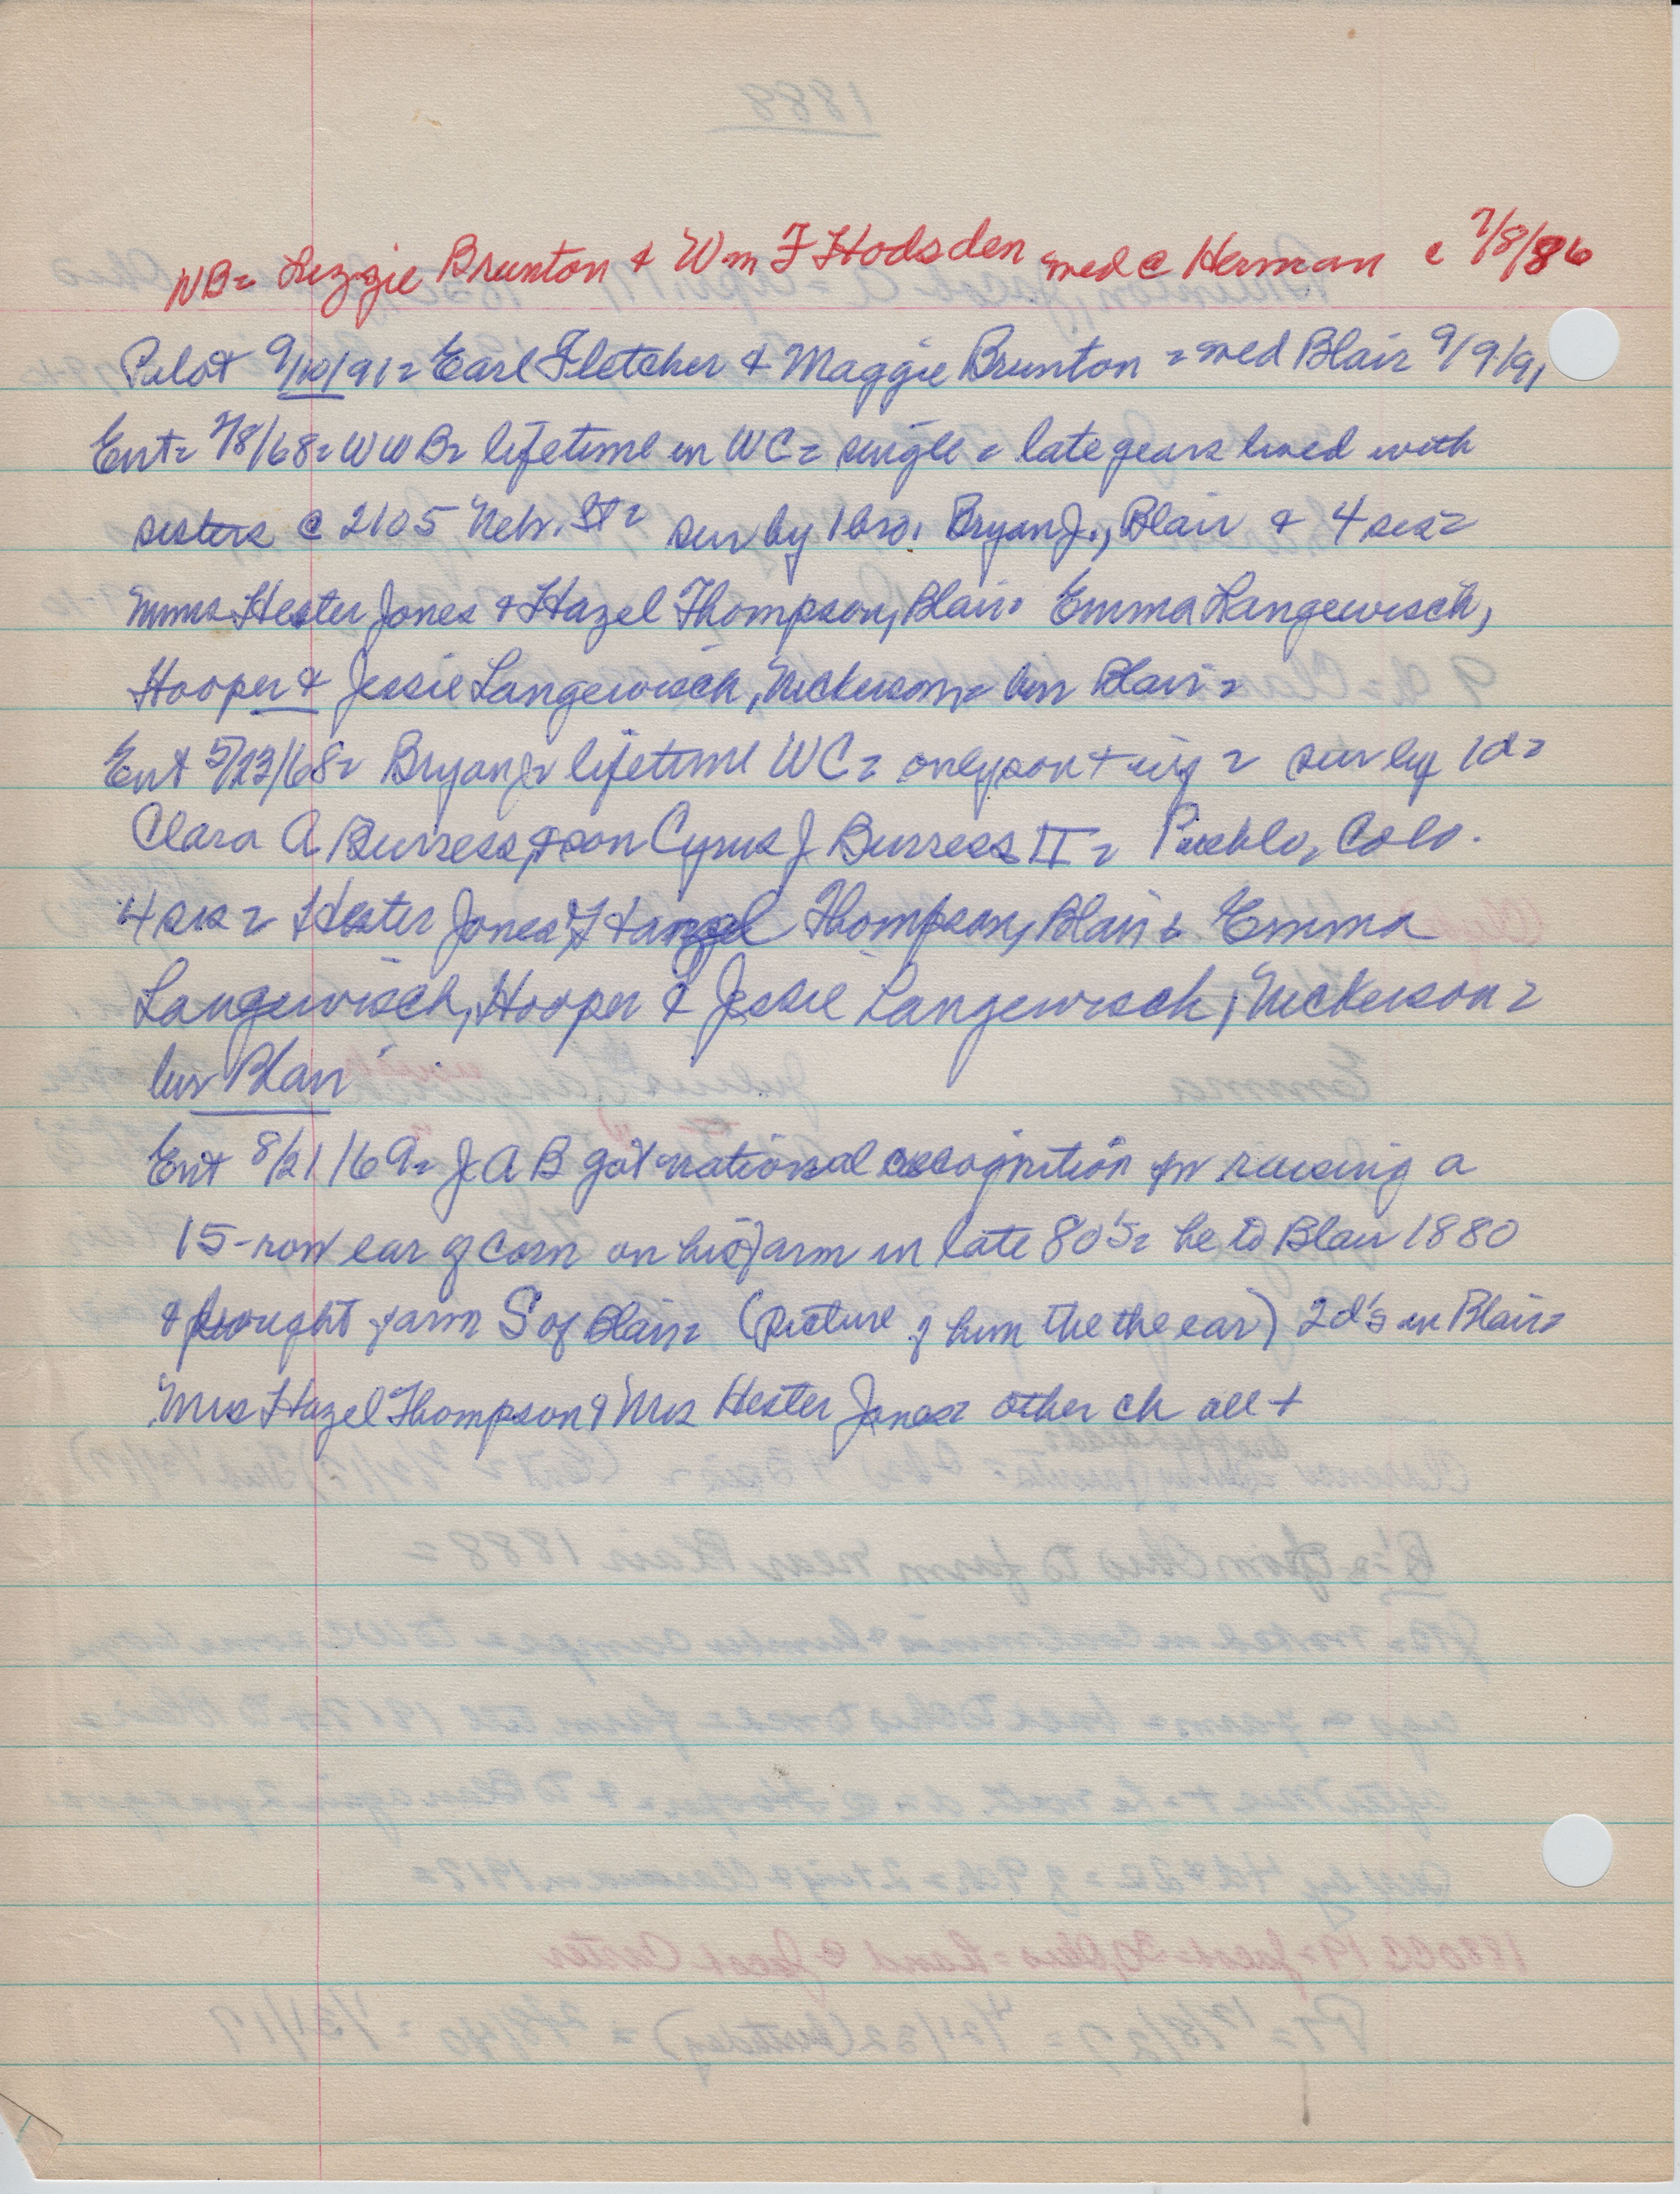 NB= Lizzie Brunton & Wm F Hodsden med @ Herman 7/8/86
Pilot 9/10/91= Earl Fletcher & Maggie Brunton = med Blair 9/9/91
Ent= 7/8/68= WWB= lifetime in WC= single = late years lived with
sisters @ 2105 Nebr. St= sur by 1 bro. Bryan J., Blair & 4 sis=
Mmes Hester Jones & Hazel Thompson, Blair. Emma Langewisch,
Hooper & Jessie Langewisch, Nickerson= bur Blair=
Ent 5/23/68= Bryan J= lifetime WC= only son + inf = sur by 1d=
Clara A Burress, & son Cyrus J Burress II = Pueblo, Colo.
4 sis = Hester Jones & Hazel Thompson, Blair & Emma
Langewisch, Hooper & Jessie Langewisch, Nickerson=
bur Blair
Ent 8/21/69= J A B got national recognition for raising a
15-row ear of corn on his farm in late 80's= he to Blair 1880
& bought farm S of Blair= (picture of him the the ear) 2 d's in Blair=
Mrs Hazel Thompson & Mrs Hester Jones= other ch all +